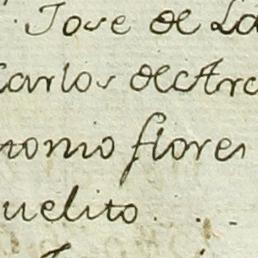 Jose de La
Carlos de Arc
nonio flores
uelito.